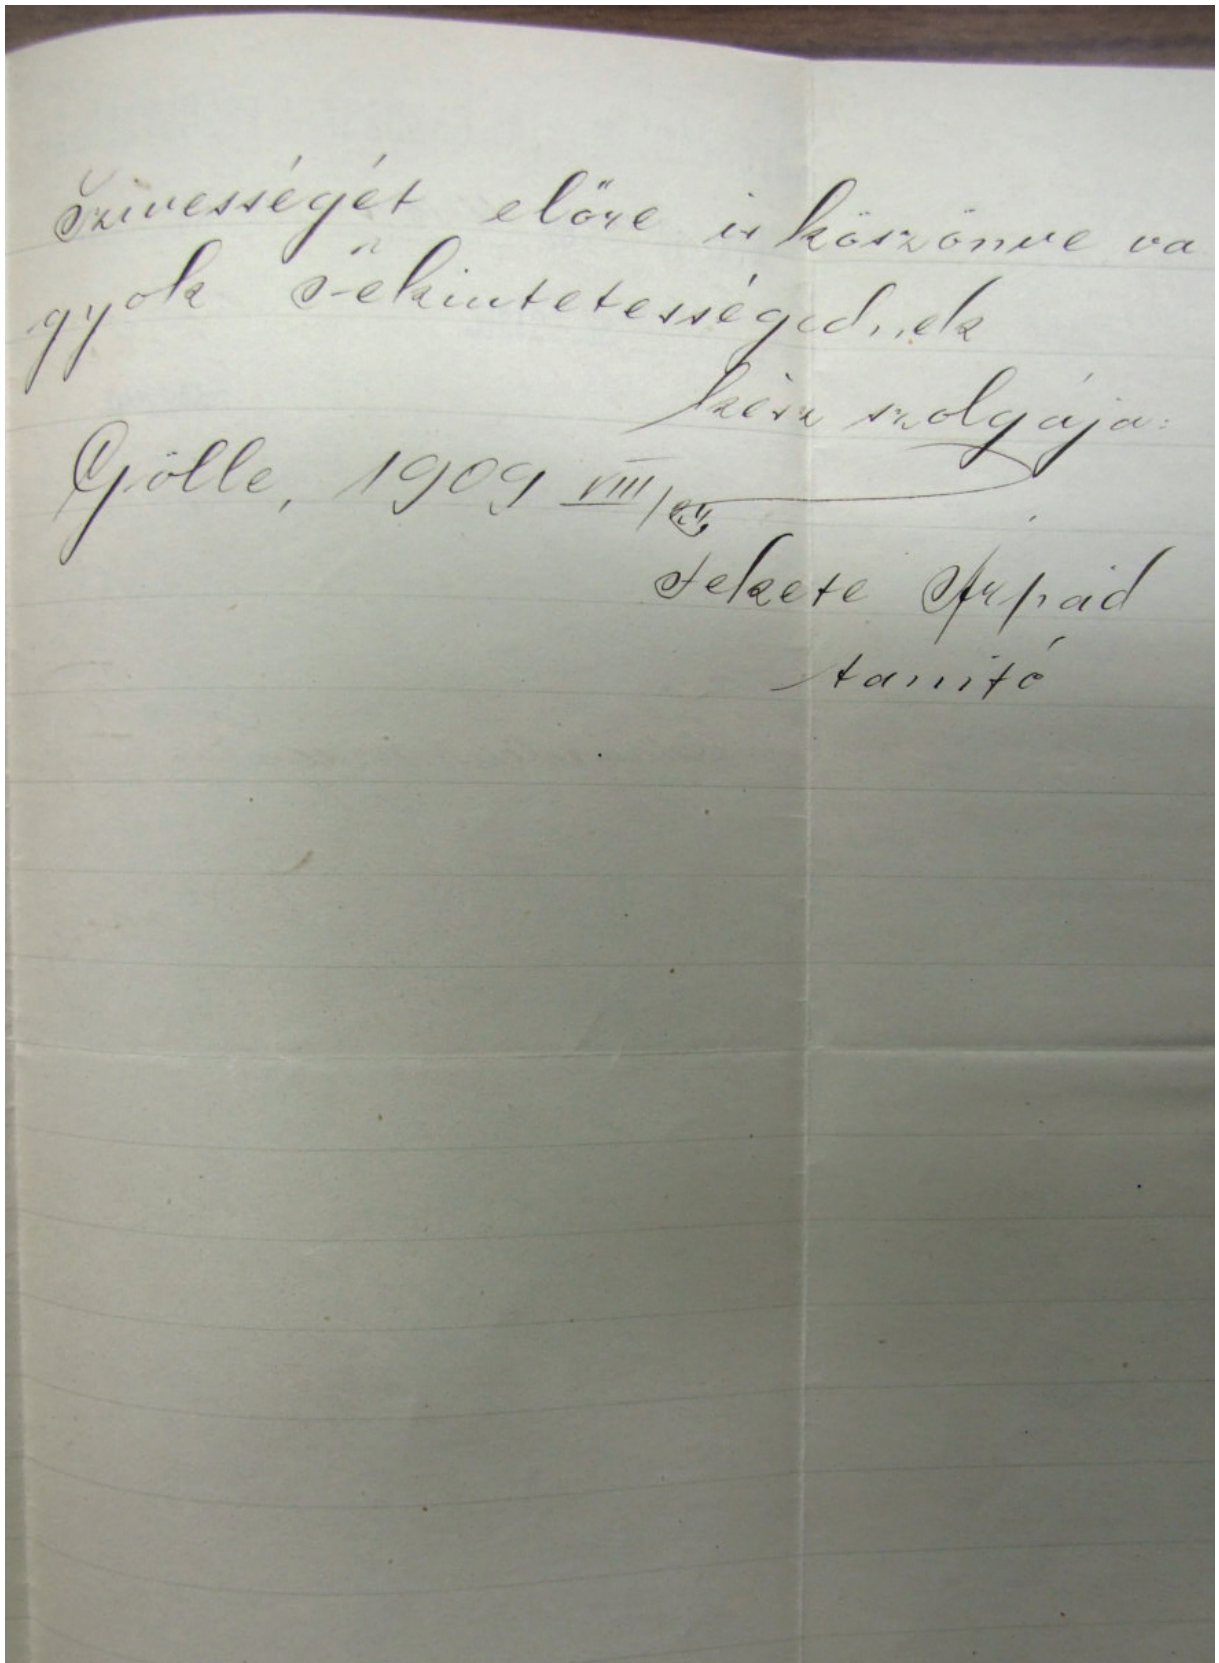 Szivességét előre is köszönve va
gyok Tekintetességednek
kész szolgája:
Gölle, 1909 VIII/
Fekete Árpád
tanító